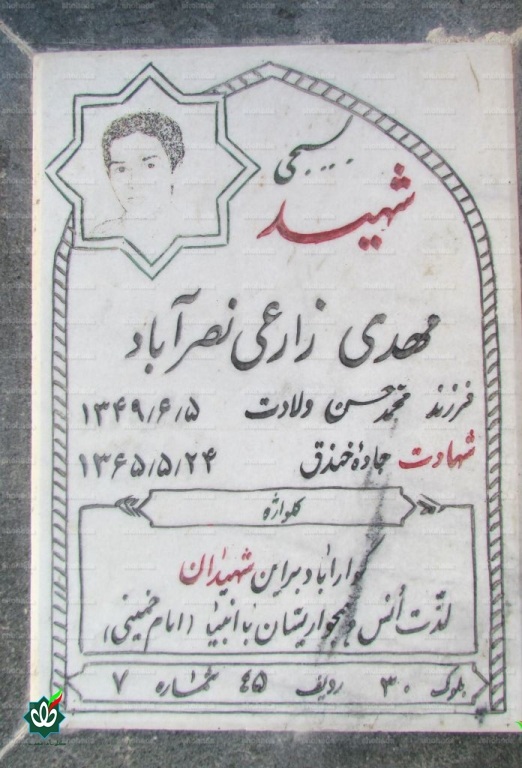 بسیجی
شهید
مهدی زارعی نصرآباد
فرزند محمدحسن ولادت ۱۳۴۹/۶/۵
شهادت جادهٔ خندق ۱۳۶۵/۵/۲۴
کلواژه
گوارا باد براین شهیدان
لذت اُنس و همجواریشان با انبیا (امام خمینی)
بلوک ۳۰ ردیف ۴۵ شماره ۷